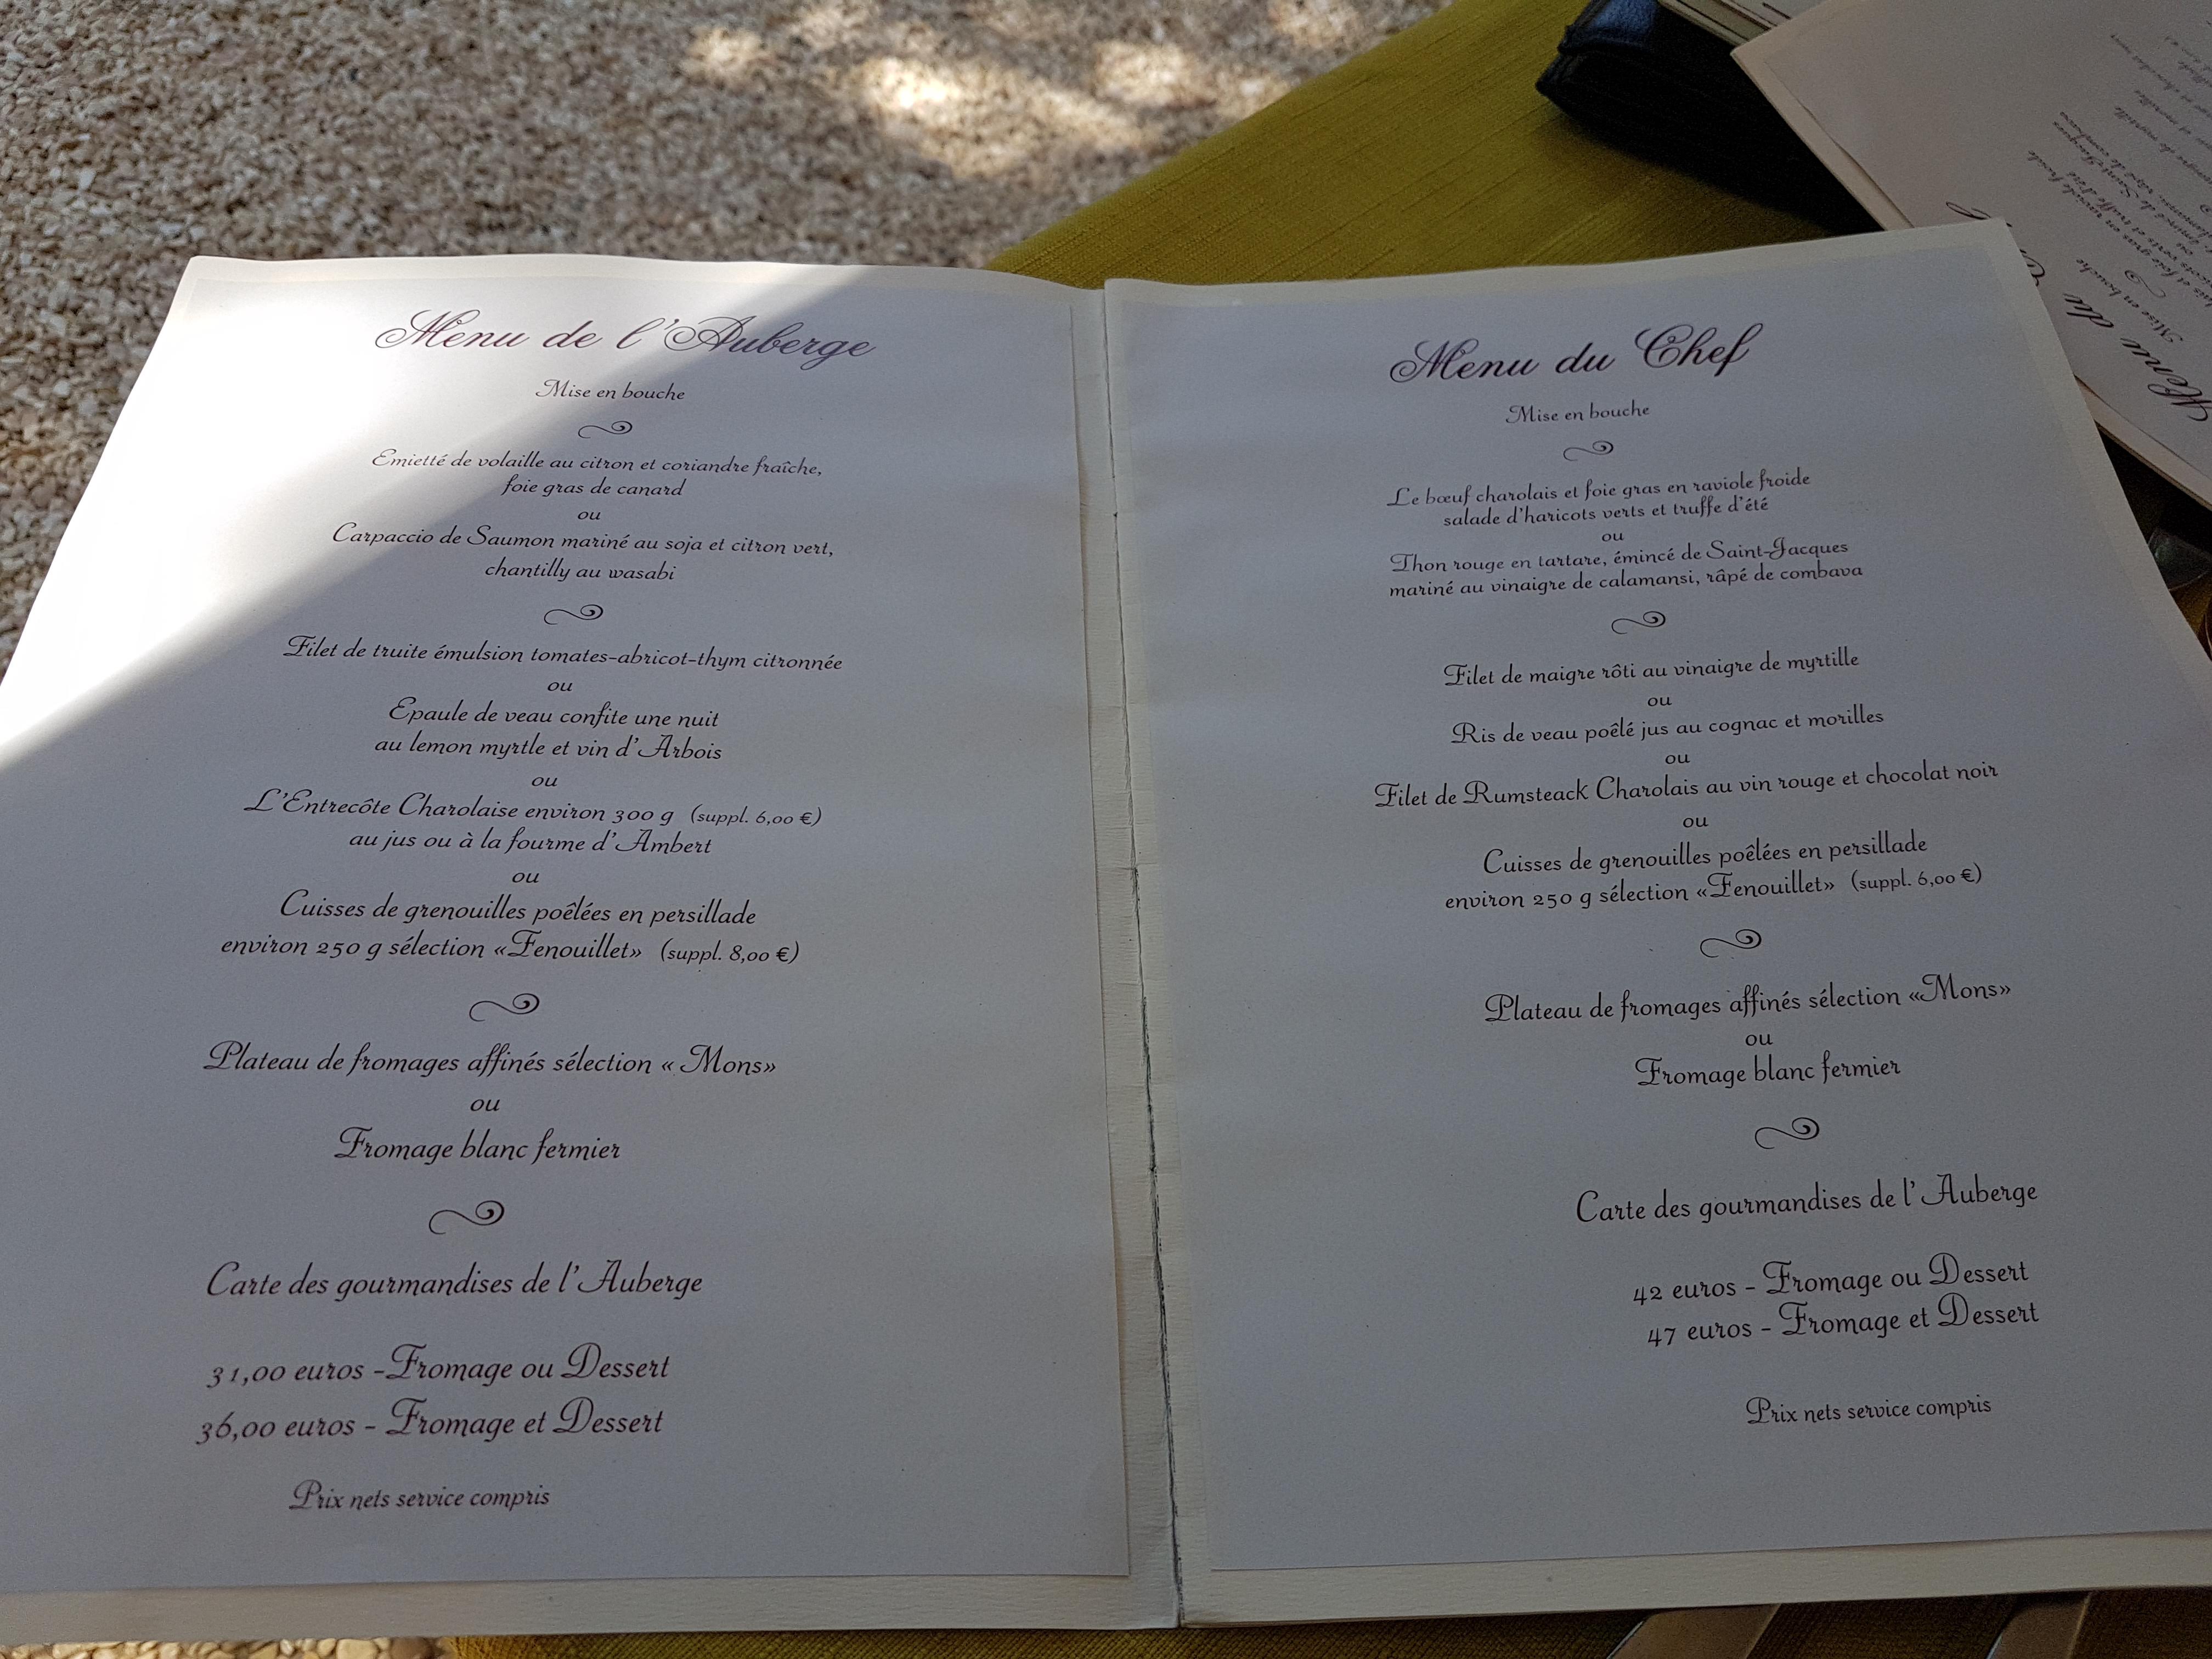 Menu de l'Auberge
Mise en bouche
Emietté de volaille au citron et coriandre fraîche,
foie gras de canard
ou
Carpaccio de Saumon mariné au soja et citron vert,
chantilly au wasabi
Filet de truite émulsion tomates-abricot-thym citronnée
ou
Epaule de veau confite une nuit
au lemon myrtle et vin d'Arbois
ou
L'Entrecôte Charolaise environ 300 g (suppl. 6,00 €)
au jus ou à la fourme d'Ambert
ou
Cuisses de grenouilles poêlées en persillade
environ 250 g sélection «Fenouillet» (suppl. 8,00 €)
Plateau de fromages affinés sélection « Mons»
ou
Fromage blanc fermier
Carte des gourmandises de l'Auberge
31,00 euros -Fromage ou Dessert
36,00 euros - Fromage et Dessert
Prix nets service compris
Menu du Chef
Mise en bouche
Le bœuf charolais et foie gras en raviole froide
salade d'haricots verts et truffe d'été
ou
Thon rouge en tartare, émincé de Saint-Jacques
mariné au vinaigre de calamansi, râpé de combava
Filet de maigre rôti au vinaigre de myrtille
ou
Ris de veau poêlé jus au cognac et morilles
ou
Filet de Rumsteack Charolais au vin rouge et chocolat noir
ou
Cuisses de grenouilles poêlées en persillade
environ 250 g sélection «Fenouillet» (suppl. 6,00 €)
Plateau de fromages affinés sélection «Mons»
ou
Fromage blanc fermier
Carte des gourmandises de l'Auberge
42 euros - Fromage ou Dessert
47 euros - Fromage et Dessert
Prix nets service compris
Menu du
Mise en bouche